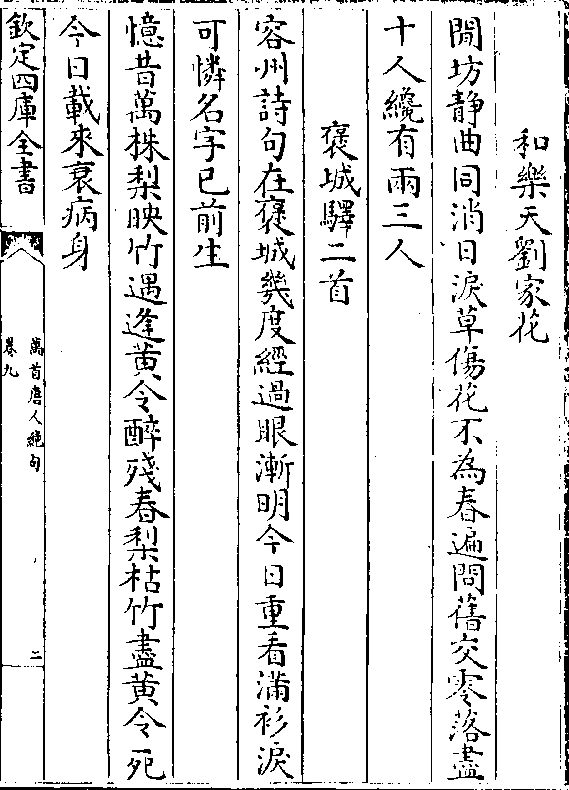 和樂天劉家花
閒坊静曲同消日淚草傷花不為春遍問舊交零落盡
十人纔有兩三人
褒城驛二首
容州詩句在褒城㡬度經過眼漸明今日重看滿衫淚
可憐名字已前生
憶昔萬株梨映竹遇逢黄令醉殘春梨枯竹盡黄令死
今日載來衰病身
欽定四庫全書
萬首唐人絶句
卷九
二